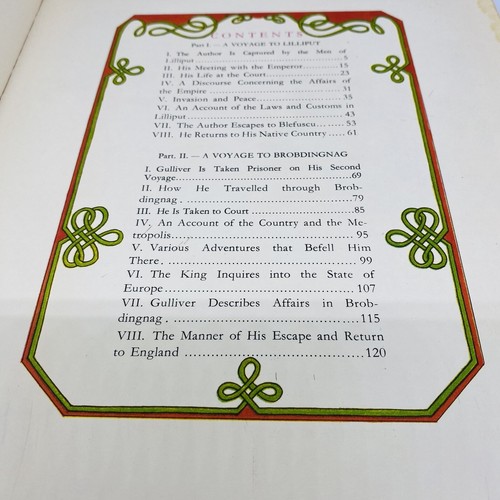 CONTENTS
Part I. — A VOYAGE TO LILLIPUT
I. The Author Is Captured by the Men of
Lilliput ..... 5
II. His Meeting with the Emperor ..... 15
III. His Life at the Court ..... 23
IV. A Discourse Concerning the Affairs of
the Empire ..... 31
V. Invasion and Peace ..... 35
VI. An Account of the Laws and Customs in
Lilliput ..... 43
VII. The Author Escapes to Blefuscu ..... 53
VIII. He Returns to His Native Country ..... 61
Part. II. — A VOYAGE TO BROBDINGNAG
I. Gulliver Is Taken Prisoner on His Second
Voyage ..... 69
II. How He Travelled through Brob-
dingnag ..... 79
III. He Is Taken to Court ..... 85
IV. An Account of the Country and the Me-
tropolis ..... 95
V. Various Adventures that Befell Him
There. ..... 99
VI. The King Inquires into the State of
Europe ..... 107
VII. Gulliver Describes Affairs in Brob-
dingnag ..... 115
VIII. The Manner of His Escape and Return
to England ..... 120